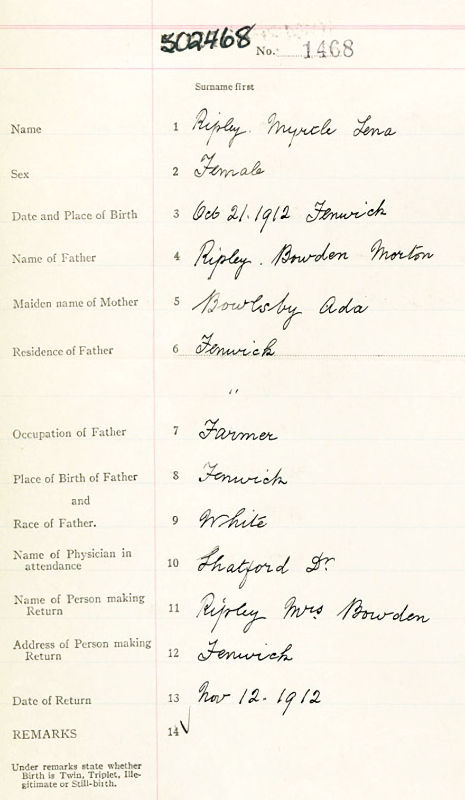 502468 No. 1468
Surname first
Name 1 Ripley. Myrtle Lena
Sex 2 Female
Date and Place of Birth 3 Oct 21. 1912 Fenwick
Name of Father 4 Ripley. Bowden Morton
Maiden name of Mother 5 Bowlsby Ada
Residence of Father 6 Fenwick
"
Occupation of Father 7 Farmer
Place of Birth of Father 8 Fenwick
and
Race of Father. 9 White
Name of Physician in
attendance 10 Shatford Dr.
Name of Person making
Return 11 Ripley Mrs Bowden
Address of Person making
Return 12 Fenwick
Date of Return 13 Nov 12. 1912
REMARKS 14 ✓
Under remarks state whether
Birth is Twin, Triplet, Ille-
gitimate or Still-birth.